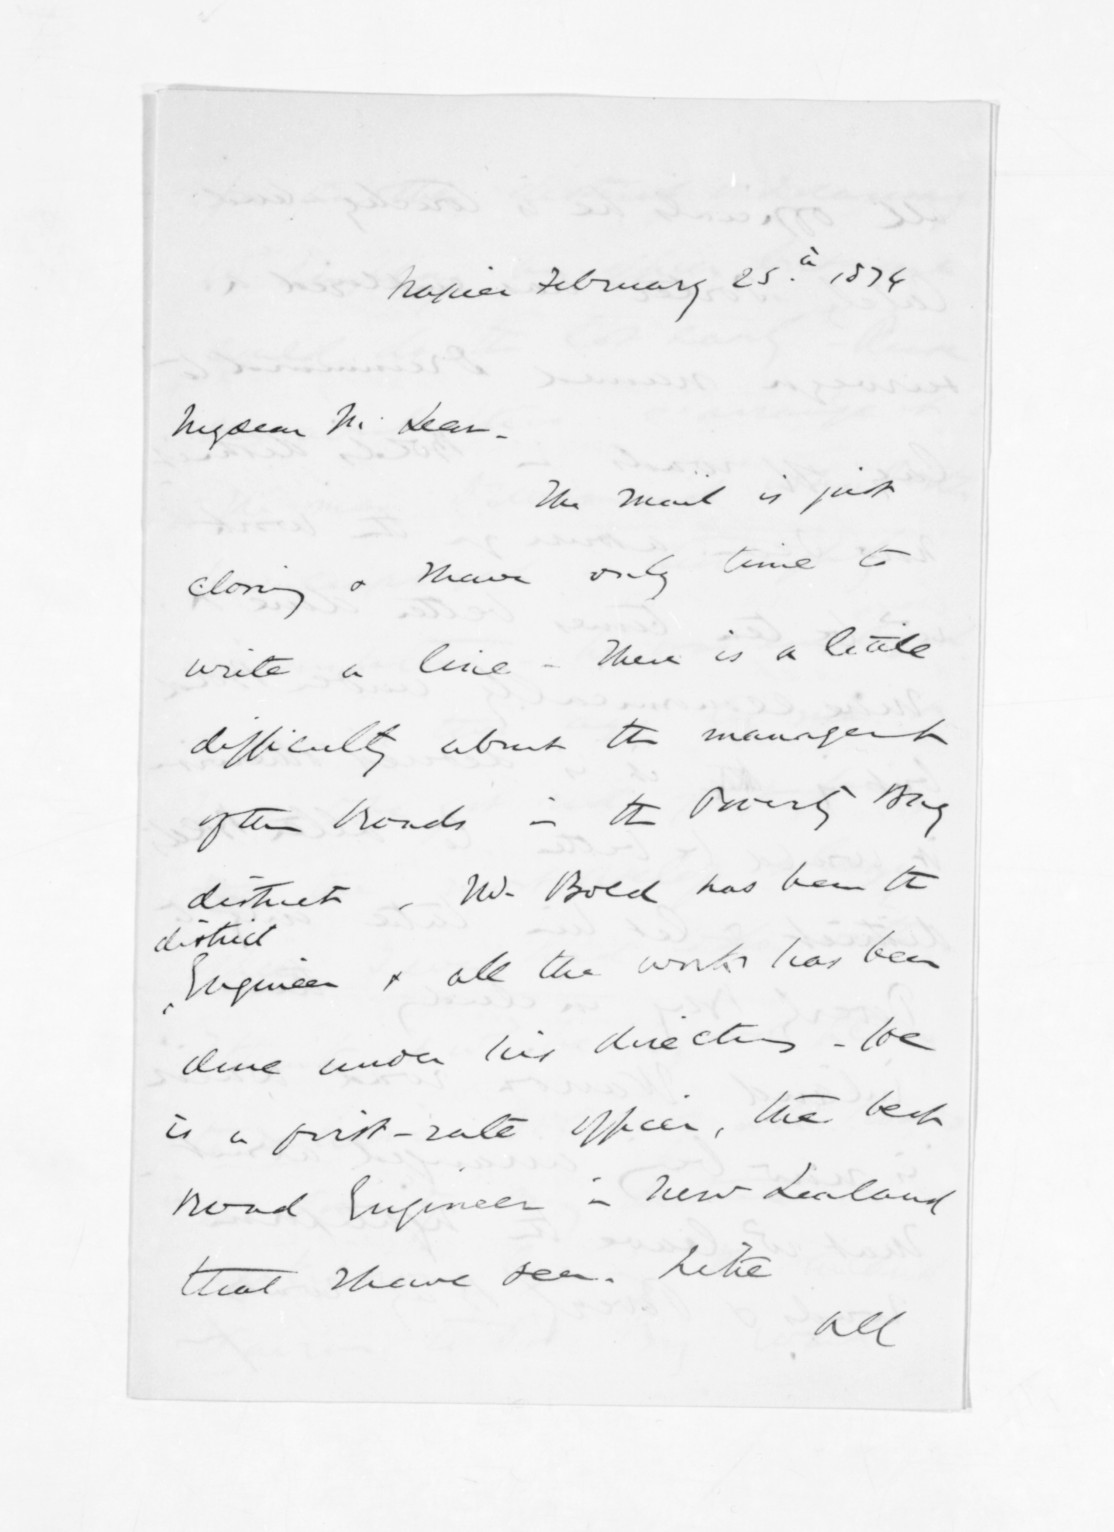 Napier February 25th 1874
My dear McLean.
The Mail is just
closing & I have only time to
write a line - There is a little
difficulty about the management
of the Roads in the Poverty Bay
district. Mr Bold has been the
district
Engineer & all the works has been
done under his directions - he
is a first-rate officer, the best
Road Engineer in New Zealand
that I have seen. Like
all